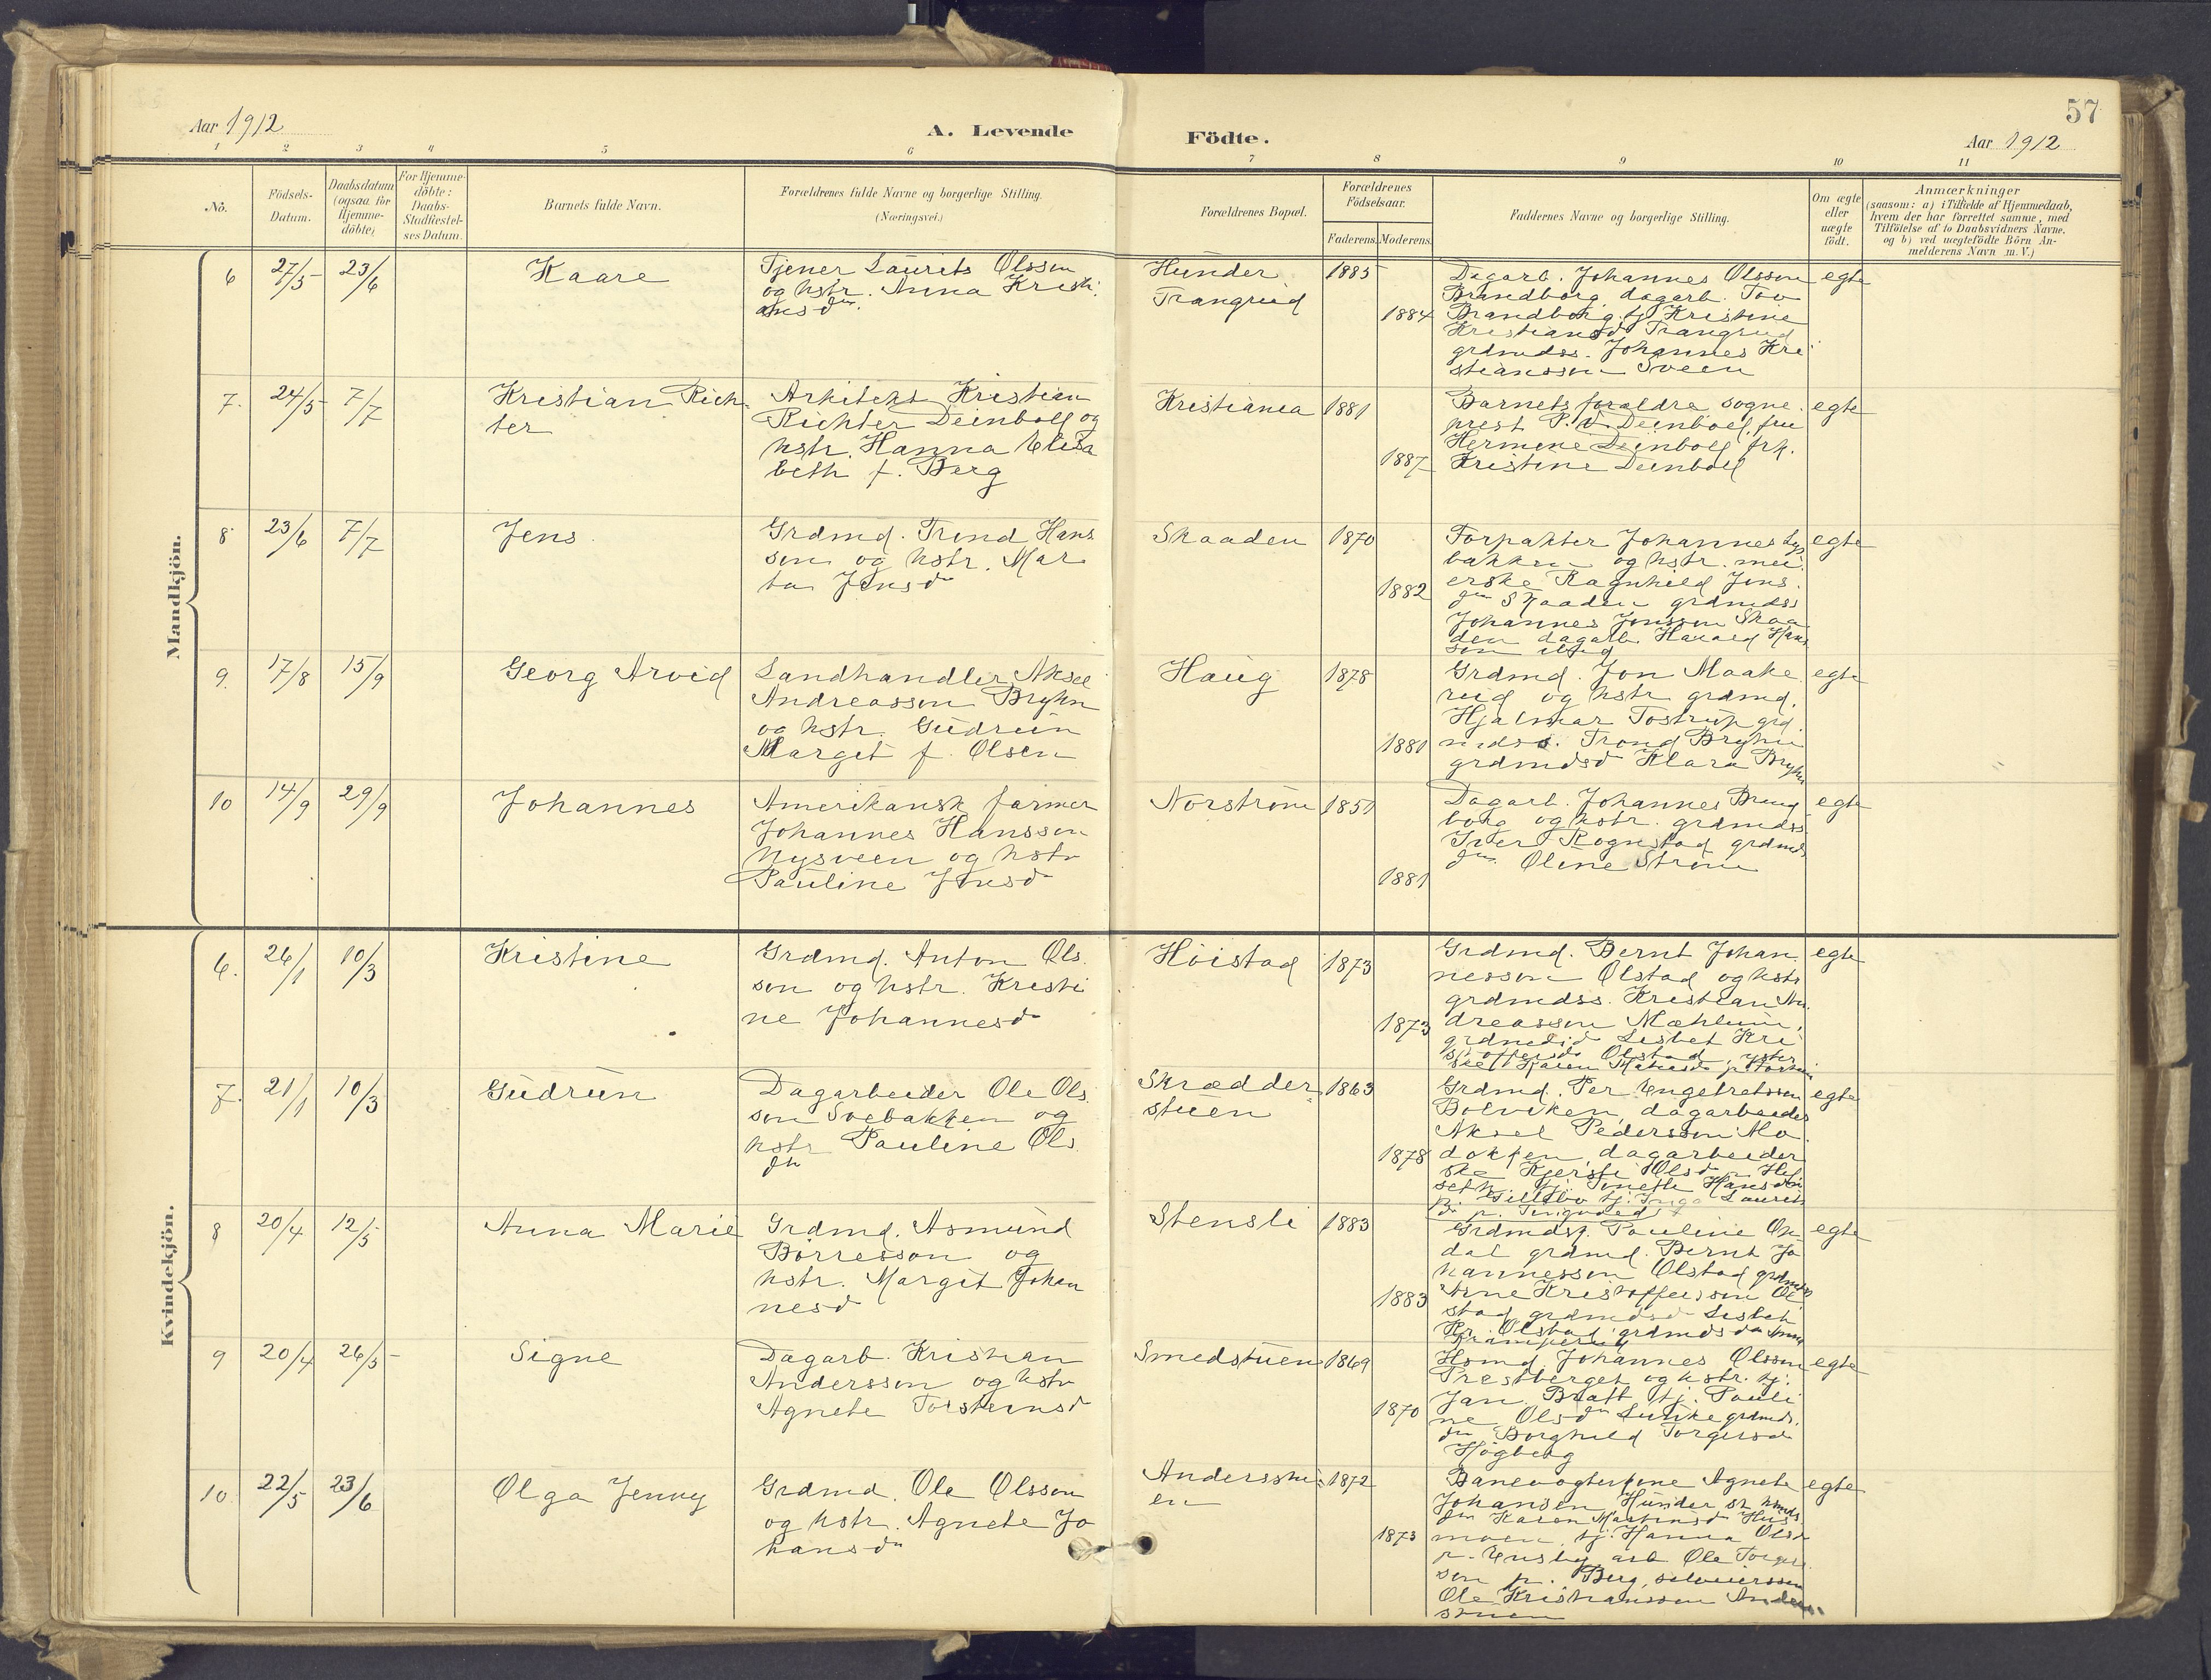 57
Aar 1912
A. Levende
Födte.
Aar 1912
1 2 3 4 5 6 7 8 9 10 11
No.
Födsels-
Datum.
Daabsdatum
(ogsaa for
Hjemme-
döbte)
For Hjemme-
döbte:
Daabs-
Stadfæstel-
ses Datum.
Barnets fulde Navn.
Forældrenes fulde Navne og borgerlige Stilling.
(Næringsvei.)
Forældrenes Bopæl.
Forældrenes
Födselsaar.
Faderens.
Moderens.
Faddernes Navne og borgerlige Stilling.
Om ægte
eller
uægte
födt.
Anmærkninger
(saasom: a) i Tilfælde af Hjemmedaab,
hvem der har forrettet samme, med
Tilföielse af to Daabsvidners Navne.
og b) ved uægtefödte Börn An-
melderens Navn m. V.)
Mandkjön.
6 27/5 23/6 Kaare
Tjener Laurits Olsson
og hstr. Anna Kristi
ansdtr.
Hunder
Trangrud
1885
1884
Dagarb. Johannes Olsson
Brandborg, dagarb. Tov
Brandborg, tj. Kristine
Kristiansd Trangrud
grdmdss. Johannes Kri
stiansson Sveen
egte
7. 24/5 7/7 Kristian Rich
ter
Arkitekt Kristian
Richter Deinboll og
hstr. Hanna Elisa
beth f. Berg
Kristiania
1881
1887
Barnets forældre, sogne
prest P. V. Deinboll, fru
Hermine Deinboll, frk.
Kristine Deinboll
egte
8 23/6 7/7 Jens
Grdmd. Trond Hans
son og hstr. Mar
ta Jensd
Skaaden
1870
1882
Forpakter Johannes Lys
bakken og hstr. mei
erske Ragnhild Jens
dtr Skaaden grdmdss
Johannes Jensson Skaa
den dagarb. Harald Hans
son
egte
9. 17/8 15/9 Georg Arvid
Landhandler Aksel
Andreasson Bryhn
og hstr. Gudrun
Marget f. Olsen
Haug
1878
1880
Grdmd. Jon Maake
rud og hstr grdmd.
Hjalmar Tostrup grd
mdss. Trond Bryhn
grdmdsd Klara Bryhn
egte
10 14/9 29/9 Johannes
Amerikansk farmer
Johannes Hansson
Nysveen og hstr
Pauline Jensd
Norstrøm
1851
1881
Dagarb. Johannes Brand
borg og hstr. grdmdss
Iver Rognstad grdmds
dtr. Oline Strøm
egte
Kvindekjön.
6. 26/1 10/3 Kristine
Grdmd. Anton Ols
son og hstr. Kristi
ne Johannesd
Høistad
1873
1873
Grdmd. Bernt Johan
nesson Olstad og hstr
grdmdss. Kristian An
dreasson Mæhlum,
grdmdsd Lisbet Kri
stoffersd Olstad
egte
7. 21/1 10/3 Gudrun
Dagarbeider Ole Ols
son Svebakken og
hstr Pauline Ols
dtr
Skrædder
stuen
1863
1878
Grdmd. Per Engebretsson
Bolviken, dagarbeider
Aksel Pedersson Mo
dokken, dagarbeider
ske Kjersti Olsd
egte
8 20/4 12/5 Anna Marie
Grdmd. Asmund
Børresson og
hstr. Margit Johan
nesd
Stensli
1883
1883
Grdmdsk. Pauline
dal grdmd. Bernt Jo
hannesson Olstad grdmdss
Arne Kristoffersson Ol
stad grdmdsd Lisbet
Kr. Olstad grdmdsd
egte
9 20/4 26/5 Signe
Dagarb. Kristian
Andersson og hstr
Agnete Torsteinsd
Smedstuen
1869
1870
Hsmd. Johannes Olsson
Prestberget og hstr. tj.
Jan Bratt, tj. Pauli
ne Olsd Lunke grdmds.
dtr Borghild Torgersd
Høgberg
egte
10 22/5 23/6 Olga Jenny
Grdmd. Ole Olsson
og hstr. Agnete Jo
hansdtr
Andersstu
en
1872
1873
Banevogterkone Agnete
Johansen Hunder st.
Karen Martinsd
moen, tj. Hanna Olsd
p. Ensby arb Ole Torger
son p. Berg, selveierssøn
Ole Kristiansson Anders
stuen
egte